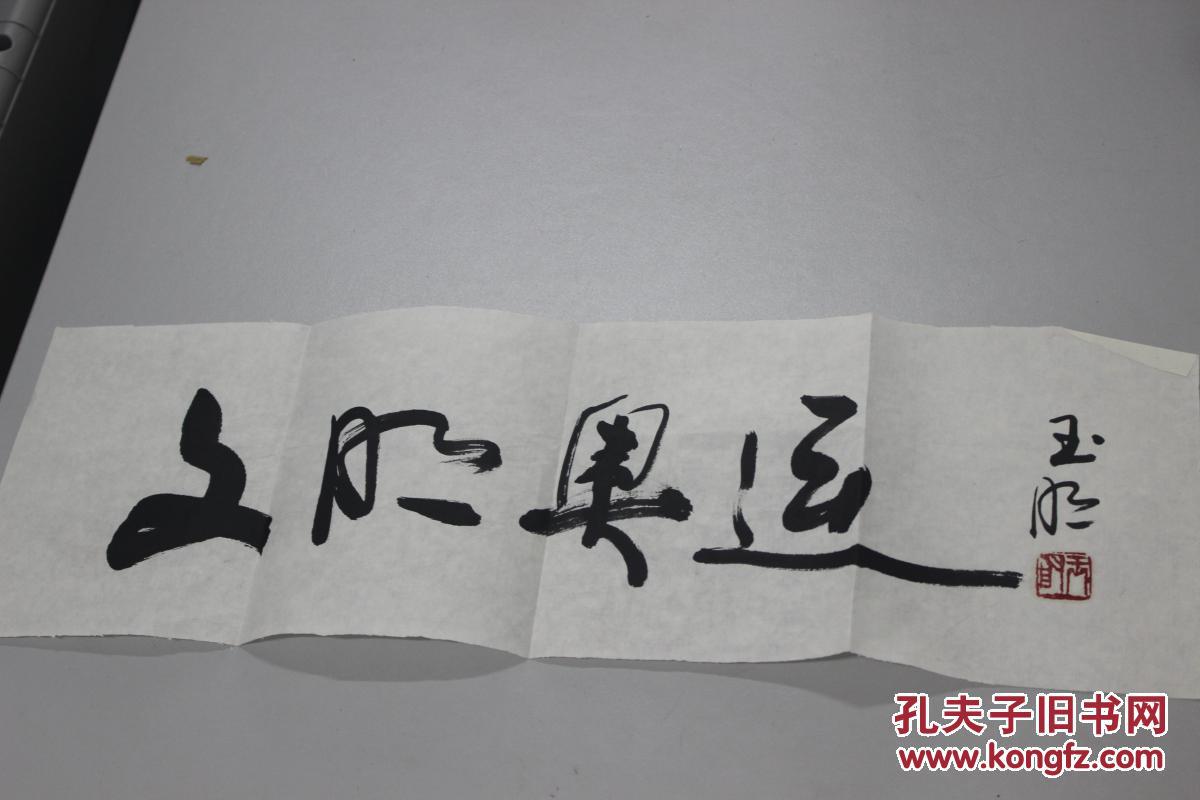 文明奥运
玉明
孔夫子旧书网
www.kongfz.com